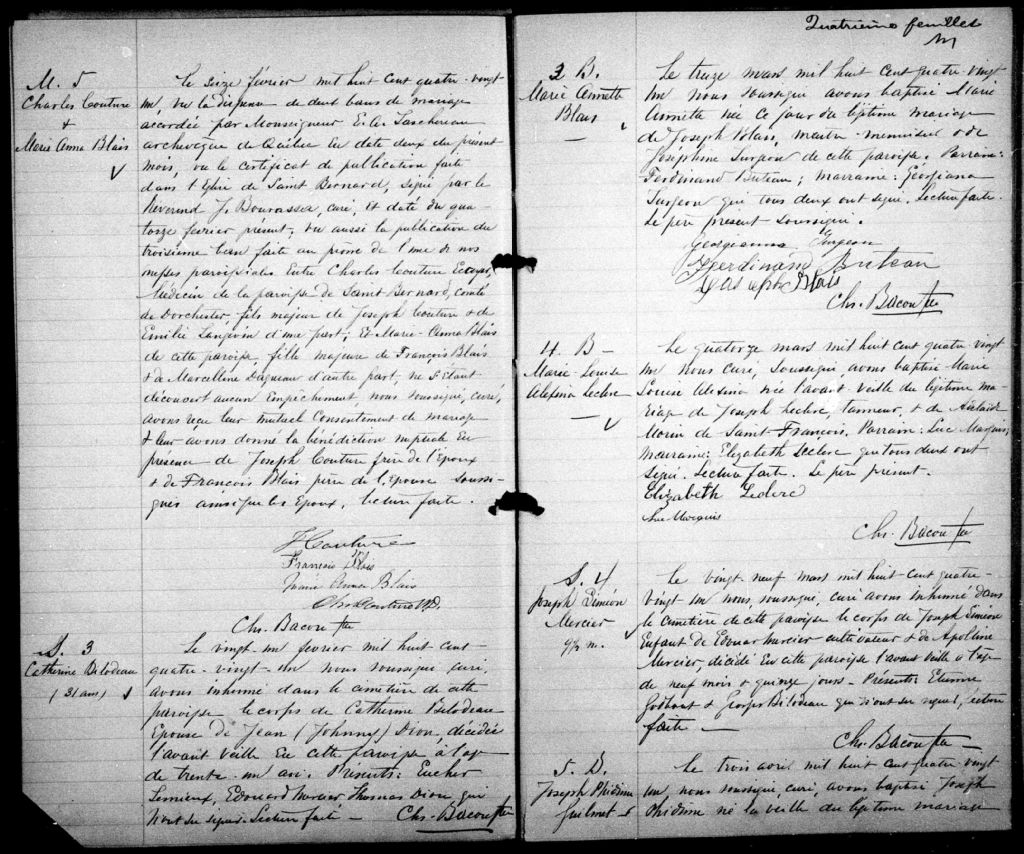 M. 5
Charles Couture
+
Marie Anna Blais
Le seize février mil huit cent quatre-vingt
un, vu la dispense de deux bans de mariage
accordée par Monseigneur E. A. Taschereau
archevêque de Québec en date deux du présent
mois, vu le certificat de publication faite
dans l'église de Saint Bernard, signé par le
Révérend J. Bourassa, curé, et daté du qua-
torze février présent; vu aussi la publication du
troisième ban faite au prône de l'une de nos
messes paroissiales Entre Charles Couture Ecuyer,
Médecin de la paroisse de Saint Bernard, comté
de Dorchester, fils majeur de Joseph Couture & de
Emilie Langevin d'une part; Et Marie-Anna Blais
de cette paroisse, fille majeure de François Blais
& de Marcelline Dagneau d'autre part, ne s'étant
découvert aucun Empêchement, nous soussigné, curé,
avons reçu leur mutuel Consentement de mariage
& leur avons donné la bénédiction nuptiale En
présence de Joseph Couture frère de l'Epoux
& de François Blais père de l'épouse soussi-
gnés ainsi que les Epoux, lecture faite.
J Couture
François Blais
Marie Anna Blais
Chs Couture M.D.
Chs. Bacon Ptre
S. 3
Catherine Bilodeau
(31 ans)
Le vingt-un février mil huit cent-
quatre-vingt-un nous soussigné curé,
avons inhumé dans le cimetière de cette
paroisse le corps de Catherine Bilodeau
Epouse de Jean (Johnny) Dion, décédée
l'avant veille En cette paroisse à l'age
de trente-un ans. Présents: Eucher
Lemieux, Edouard Mercier Thomas Dion qui
n'ont su signer. Lecture faite — Chs. Bacon Ptre
Quatrième feuillet
3 B.
Marie Annette
Blais
Le treize mars mil huit cent quatre-vingt
un nous soussigné avons baptisé Marie
Annette née ce jour du légitime mariage
de Joseph Blais, maître-menuisier & de
Josephine Turgeon de cette paroisse. Parrain:
Ferdinand Buteau; marraine: Georgiana
Turgeon qui tous deux ont signé. Lecture faite.
Le père présent soussigné.
Georgeanna Turgeon
Ferdinand Buteau
Joseph Blais
Chs. Bacon Ptre
4. B —
Marie Louise
Alexina Leclerc
Le quatorze mars mil huit cent quatre vingt
un Nous curé, soussigné avons baptisé Marie
Louise Alexina née l'avant veille du légitime ma
riage de Joseph Leclerc, tanneur, & de Adélaïde
Morin de Saint-François. Parrain: Luc Marquis;
marraine: Elizabeth Leclerc qui tous deux ont
signé. Lecture faite. Le père présent.
Elizabeth Leclerc
Luc Marquis
Chs. Bacon Ptre
S. 4
Joseph Siméon
Mercier
9½ m.
Le vingt-neuf mars mil huit cent quatre-
vingt un nous, soussigné, curé avons inhumé dans
le cimetière de cette paroisse le corps de Joseph Siméon
Enfant de Edouard Mercier cultivateur & de Apolline
Mercier, décédé En cette paroisse l'avant veille à l'age
de neuf mois & quinze jours — Présents Etienne
Godbout & Bilodeau qui n'ont su signer, lecture
faite —
Chs. Bacon Ptre —
5. B.
Joseph Phidime
Guilmet
Le trois avril mil huit cent quatre vingt
un, nous, soussigné, curé, avons baptisé Joseph
Phidime né la veille du légitime mariage